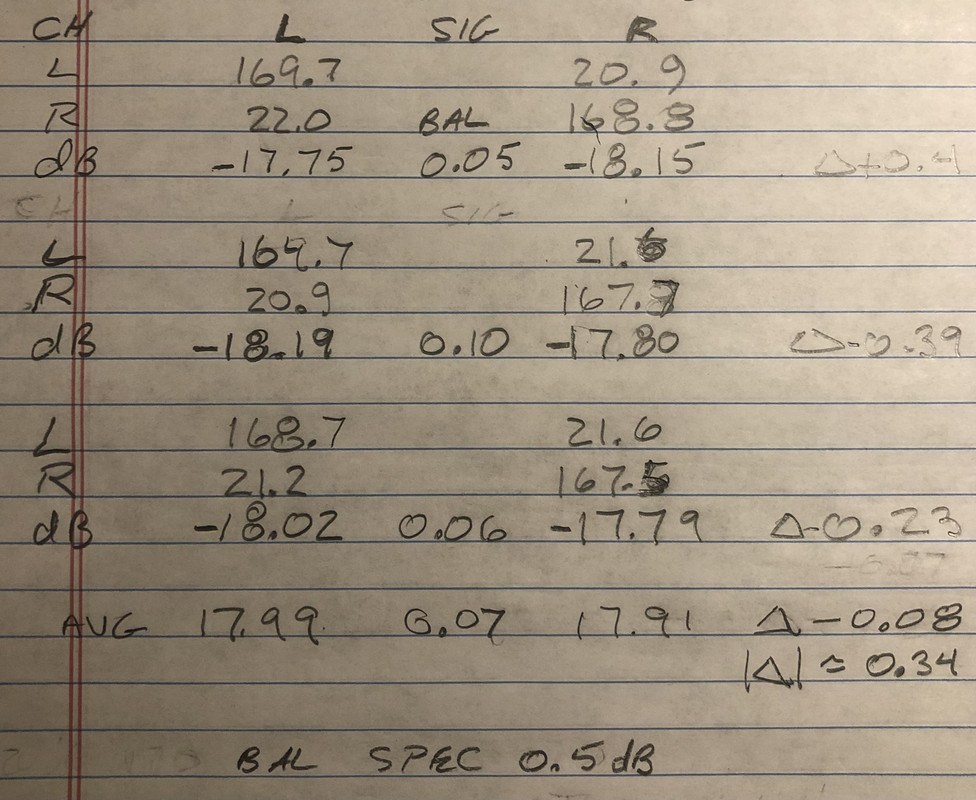 CH L SIG R
L 169.7 20.9
R 22.0 BAL 168.8
dB -17.75 0.05 -18.15 Δ+0.4
CH L SIG
L 169.7 21.6
R 20.9 167.3
dB -18.19 0.10 -17.80 Δ-0.39
L 168.7 21.6
R 21.2 167.5
dB -18.02 0.06 -17.79 Δ-0.23
AVG 17.99 0.07 17.91 Δ-0.08
|Δ| ≈ 0.34
BAL SPEC 0.5dB